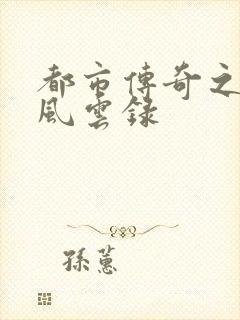 都市傳奇之
風雲錄
孫蕙